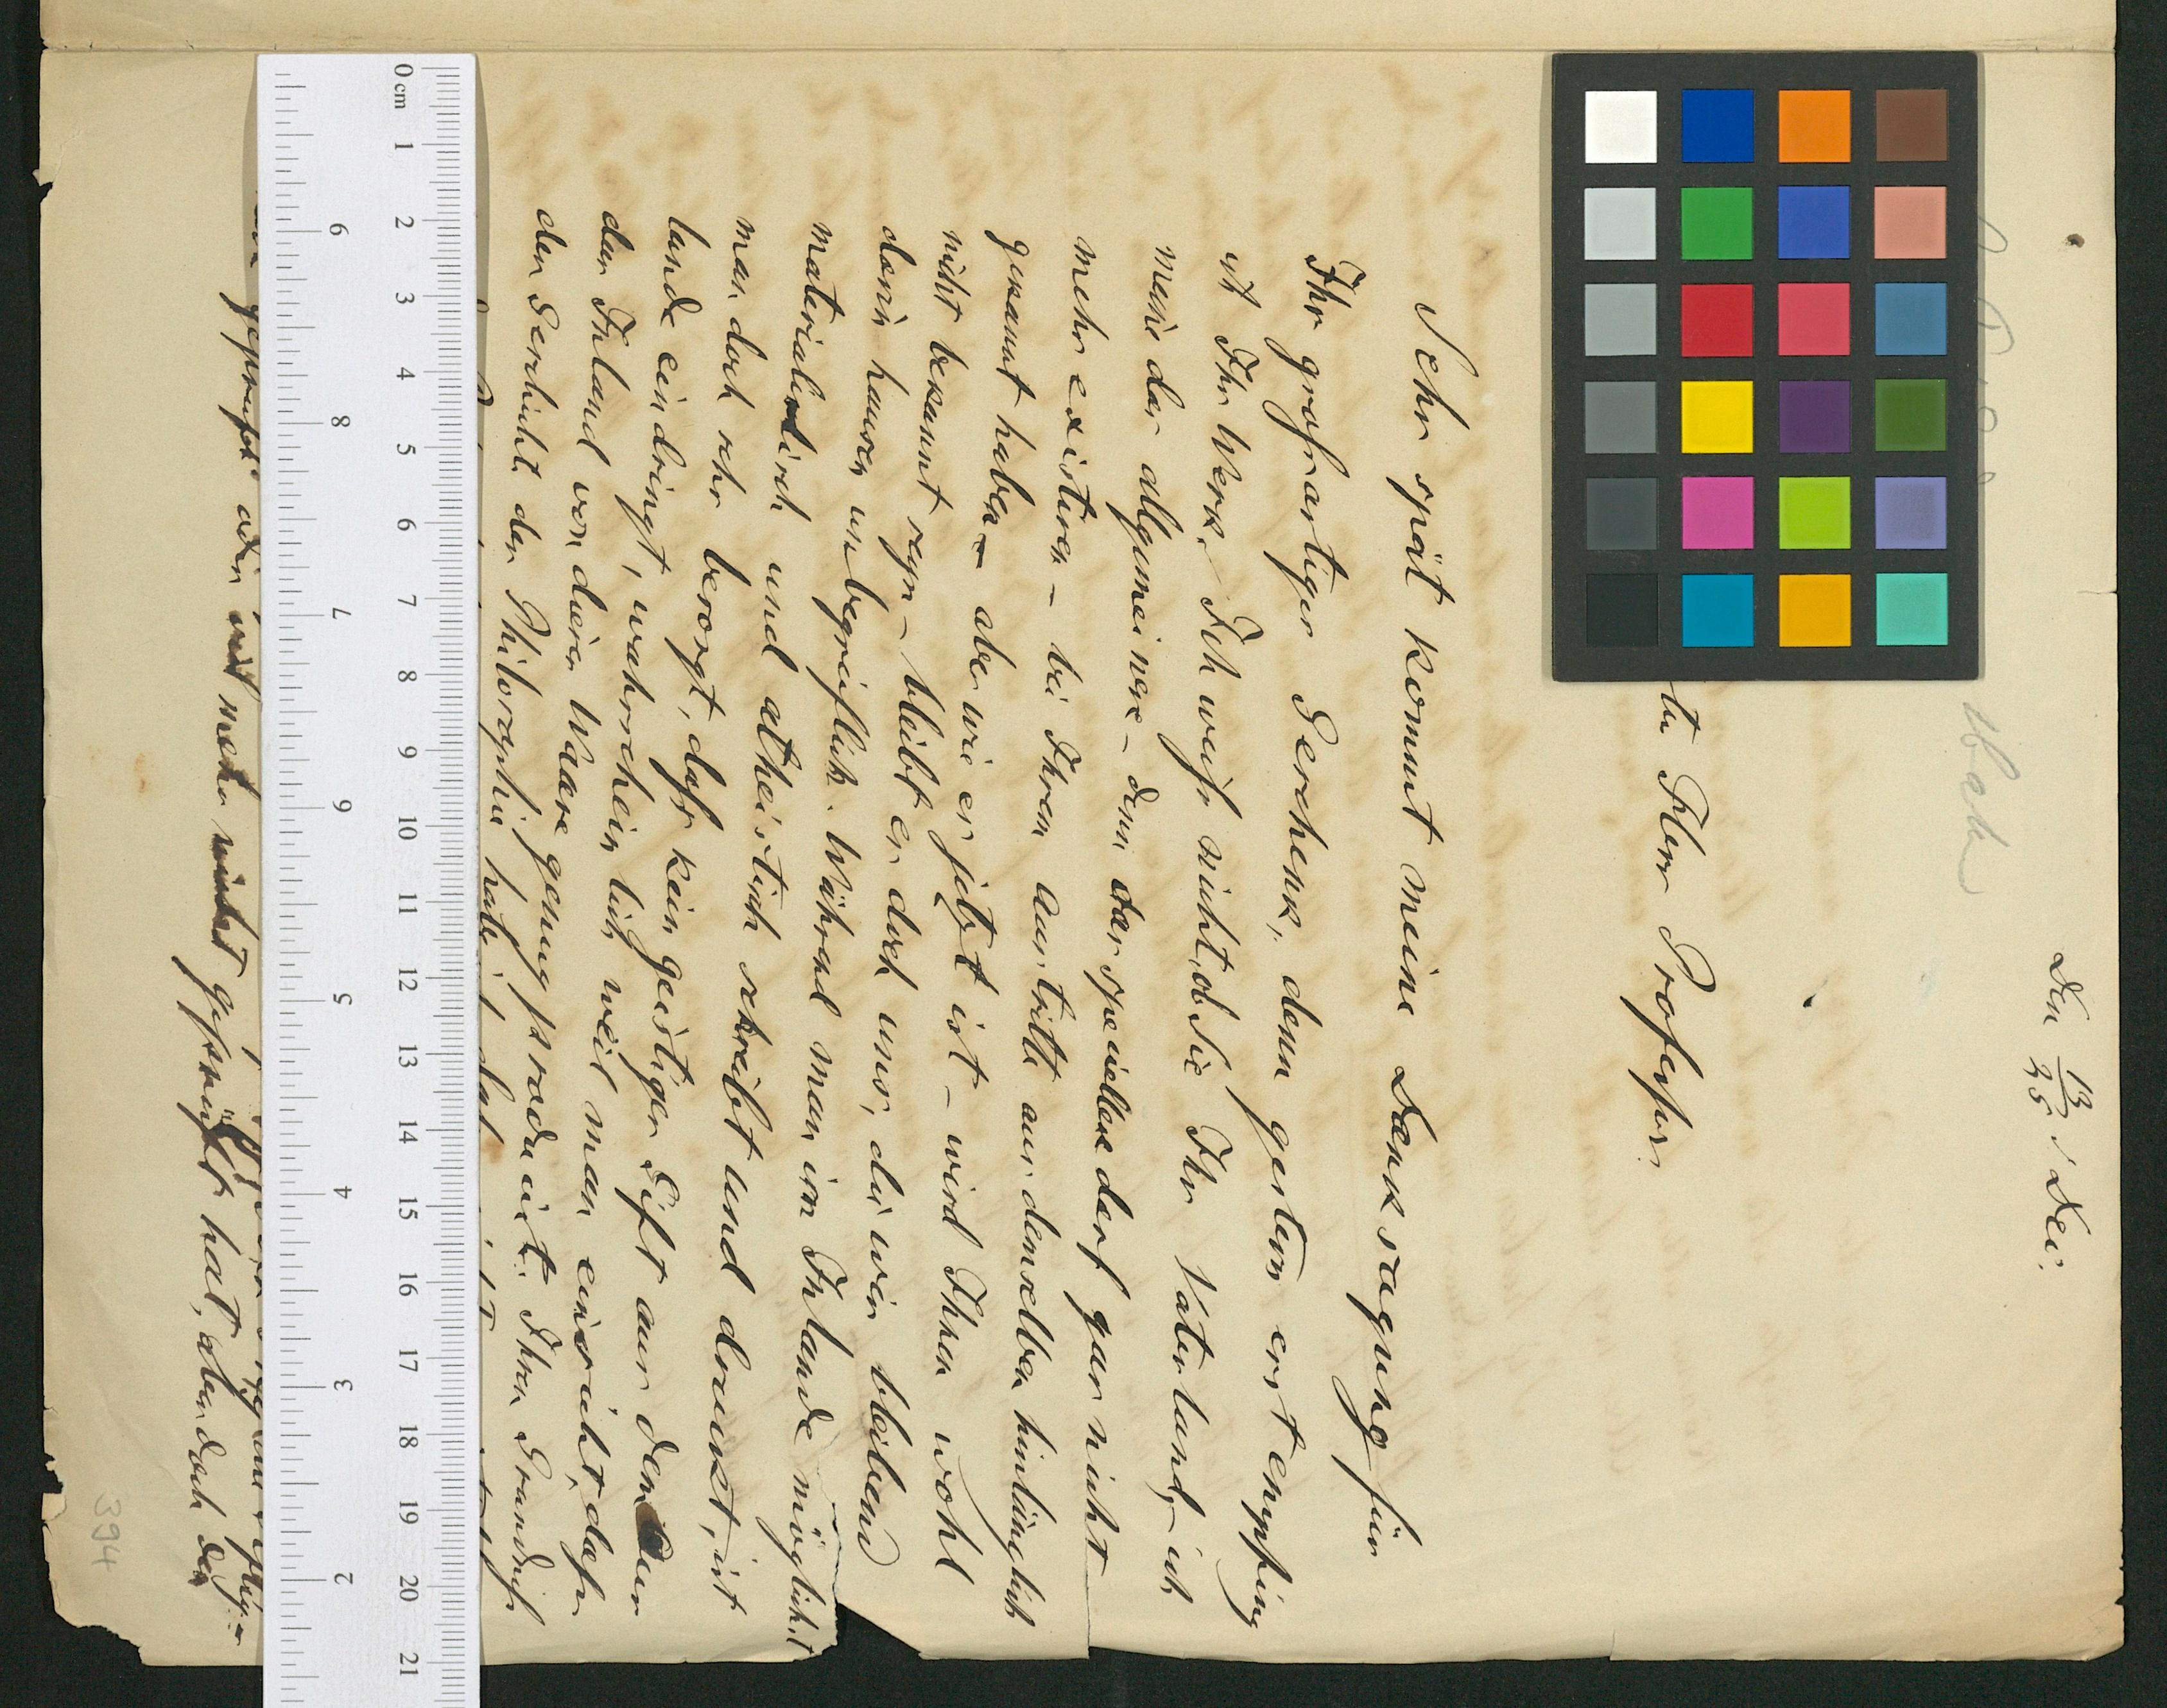 Den 13/25 / Dec.
bach
te Herr Professor
Sehr spät kommt meine Danksagung für
Ihr grofsartiges Geschenk, denn gestern erst empfing
ich Ihr Werk. Ich weifs nicht, ob Sie Ihr Vaterland, – ich
meine das allgemeinere – denn das speciellere darf gar nicht
mehr existiren – bei Ihrem Austritte aus demselben hinlänglich
gekannt haben – aber wie er jetzt ist – wird Ihnen wohl
nicht bekannt seyn – bleibt er doch uns, die wir bleibend
darin hausen unbegreiflich. Während man im Inlande möglichst
materialistisch und atheistisch schreibt und druckt, ist
man doch sehr besorgt, dafs kein geistiges Gift aus dem Aus
lande eindringt, wahrscheinlich weil man einsieht, dafs
das Inland von dieser Waare genug producirt. Ihren Grundrifs
der Geschichte der Philosophie habe
geprüft oder viel mehr nicht geprüft hat, aber doch das
0 cm 1 2 3 4 5 6 7 8 9 10 11 12 13 14 15 16 17 18 19 20 21
9 8 7 6 5 4 3 2
394